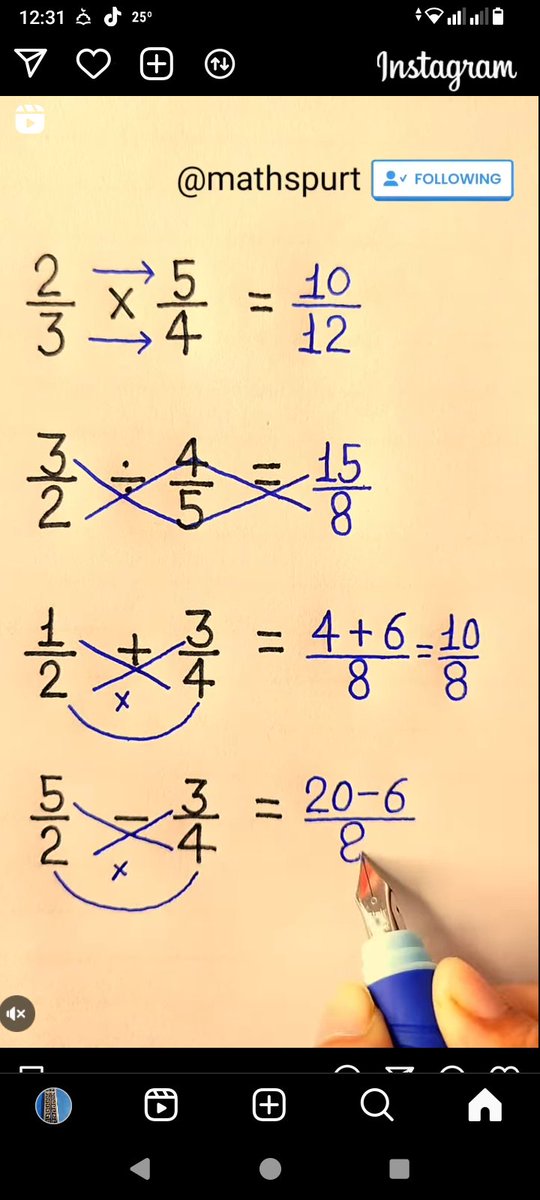 12:31 25°
Instagram
@mathspurt FOLLOWING
2/3 × 5/4 = 10/12
3/2 ÷ 4/5 = 15/8
1/2 + 3/4 = 4+6/8 = 10/8
×
5/2 − 3/4 = 20-6/8
×